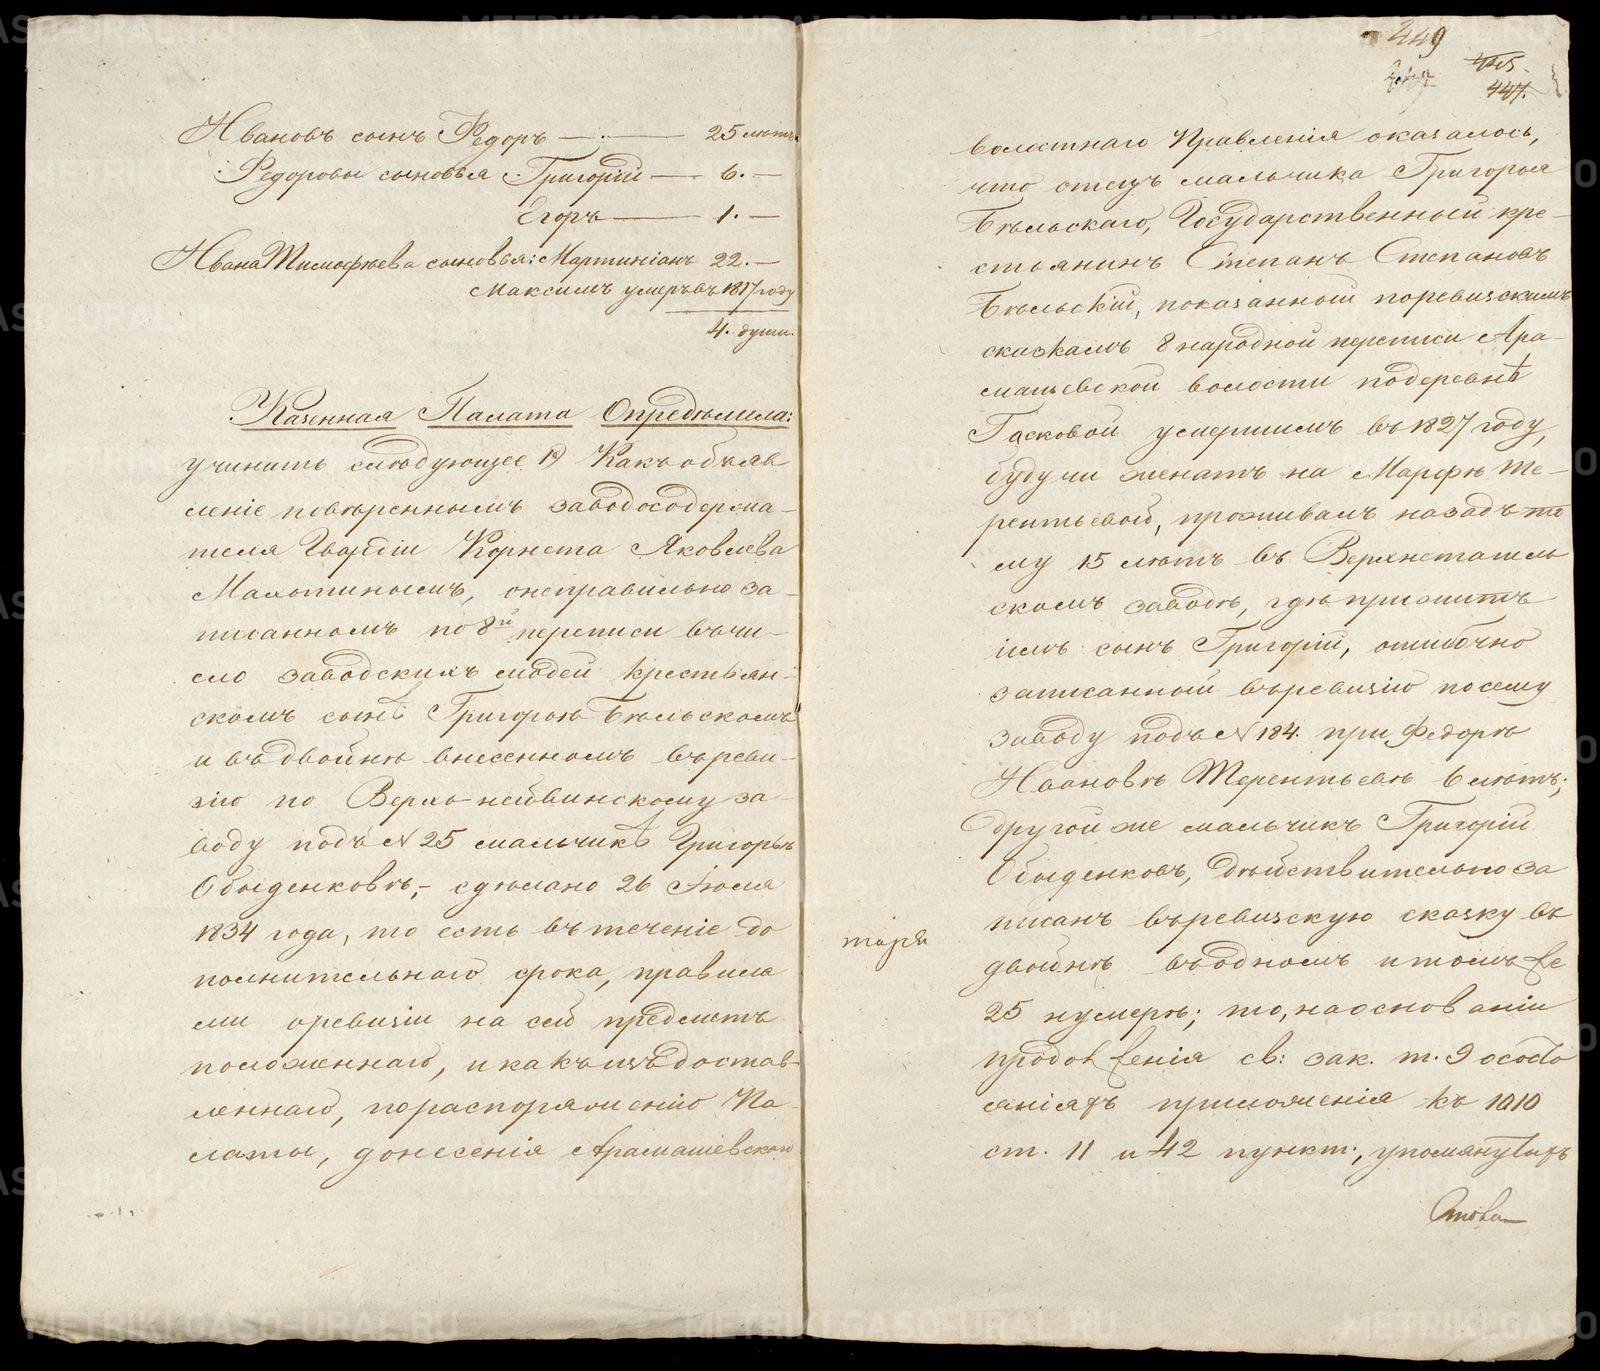 Ивановъ сынъ Федоръ — 25 лѣтъ.
Федоровы сыновья Григорій — 6. —
Егоръ — 1. —
Ивана Тимофѣева сыновья: Мартиніанъ 22. —
Максимъ умеръ въ 1817 году
4. души.
Казенная Палата Опредѣлила:
учинить слѣдующее 1) Какъ объяв
леніе повѣреннымъ заводосодержа-
теля Гвардіи Корнета Яковлева
Малютинымъ, онеправильно за-
писанномъ по 8й переписи въ чи-
сло заводскихъ людей крестьян-
скомъ сынѣ Григорьѣ Бѣльскомъ
и въ двойнѣ внесенномъ въ реви-
зію по Верхъ-нейвинскому за-
воду подъ N 25 мальчикѣ Григорьѣ
Обыденковѣ, - сдѣлано 26 Іюля
1834 года, то есть въ теченіе до
полнительнаго срока, правила
ми о ревизіи на сей предметъ
положеннаго, и какъ изъ достав-
леннаго, по распоряженію Па-
латы, донесенія Арамашевскаго
449
445
447.
волостнаго Правленія оказалось,
что отецъ мальчика Григорья
Бѣльскаго, Государственный кре-
стьянинъ Степанъ Степановъ
Бѣльскій, показанный по ревизскимъ
сказкамъ 8 народной переписи Ара-
машевской волости по деревнѣ
Гасковой умершимъ въ 1827 году,
будучи женатъ на Марфѣ Те-
рентьевой, проживалъ назадъ то
му 15 лѣтъ въ Верхнетагиль
скомъ заводѣ, гдѣ прижитъ
имъ сынъ Григорій, ошибочно
записанный въ ревизію по сему
заводу подъ N 184. при Федорѣ
Ивановѣ Терентьевѣ 6 лѣтъ;
другой же мальчикъ Григорій
Обыденковъ, дѣйствительно за
писанъ въ ревизскую сказку въ
двойнѣ въ одномъ и томъ же
25 нумерѣ; то, на основаніи
продолженія св: зак. т. 9 о состо
яніяхъ приложенія къ 1010
ст. 11 и 42 пункт., упомянутыхъ